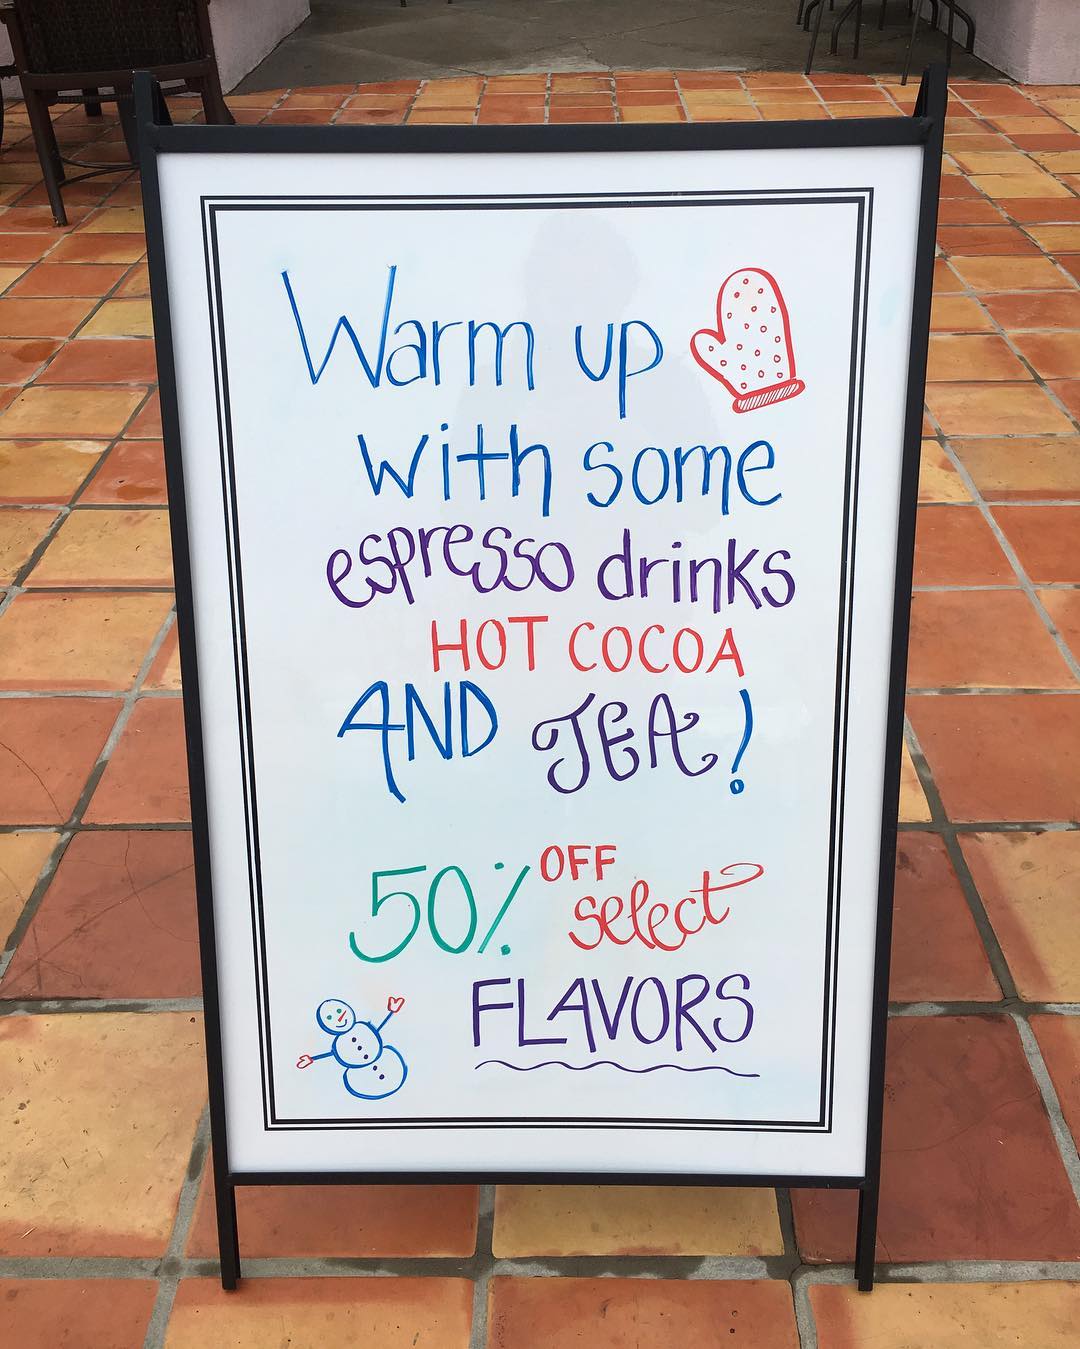 Warm up
with some
espresso drinks
HOT COCOA
AND TEA!
50% OFF
select
FLAVORS